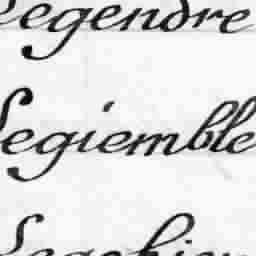 Legendre
Legiemble